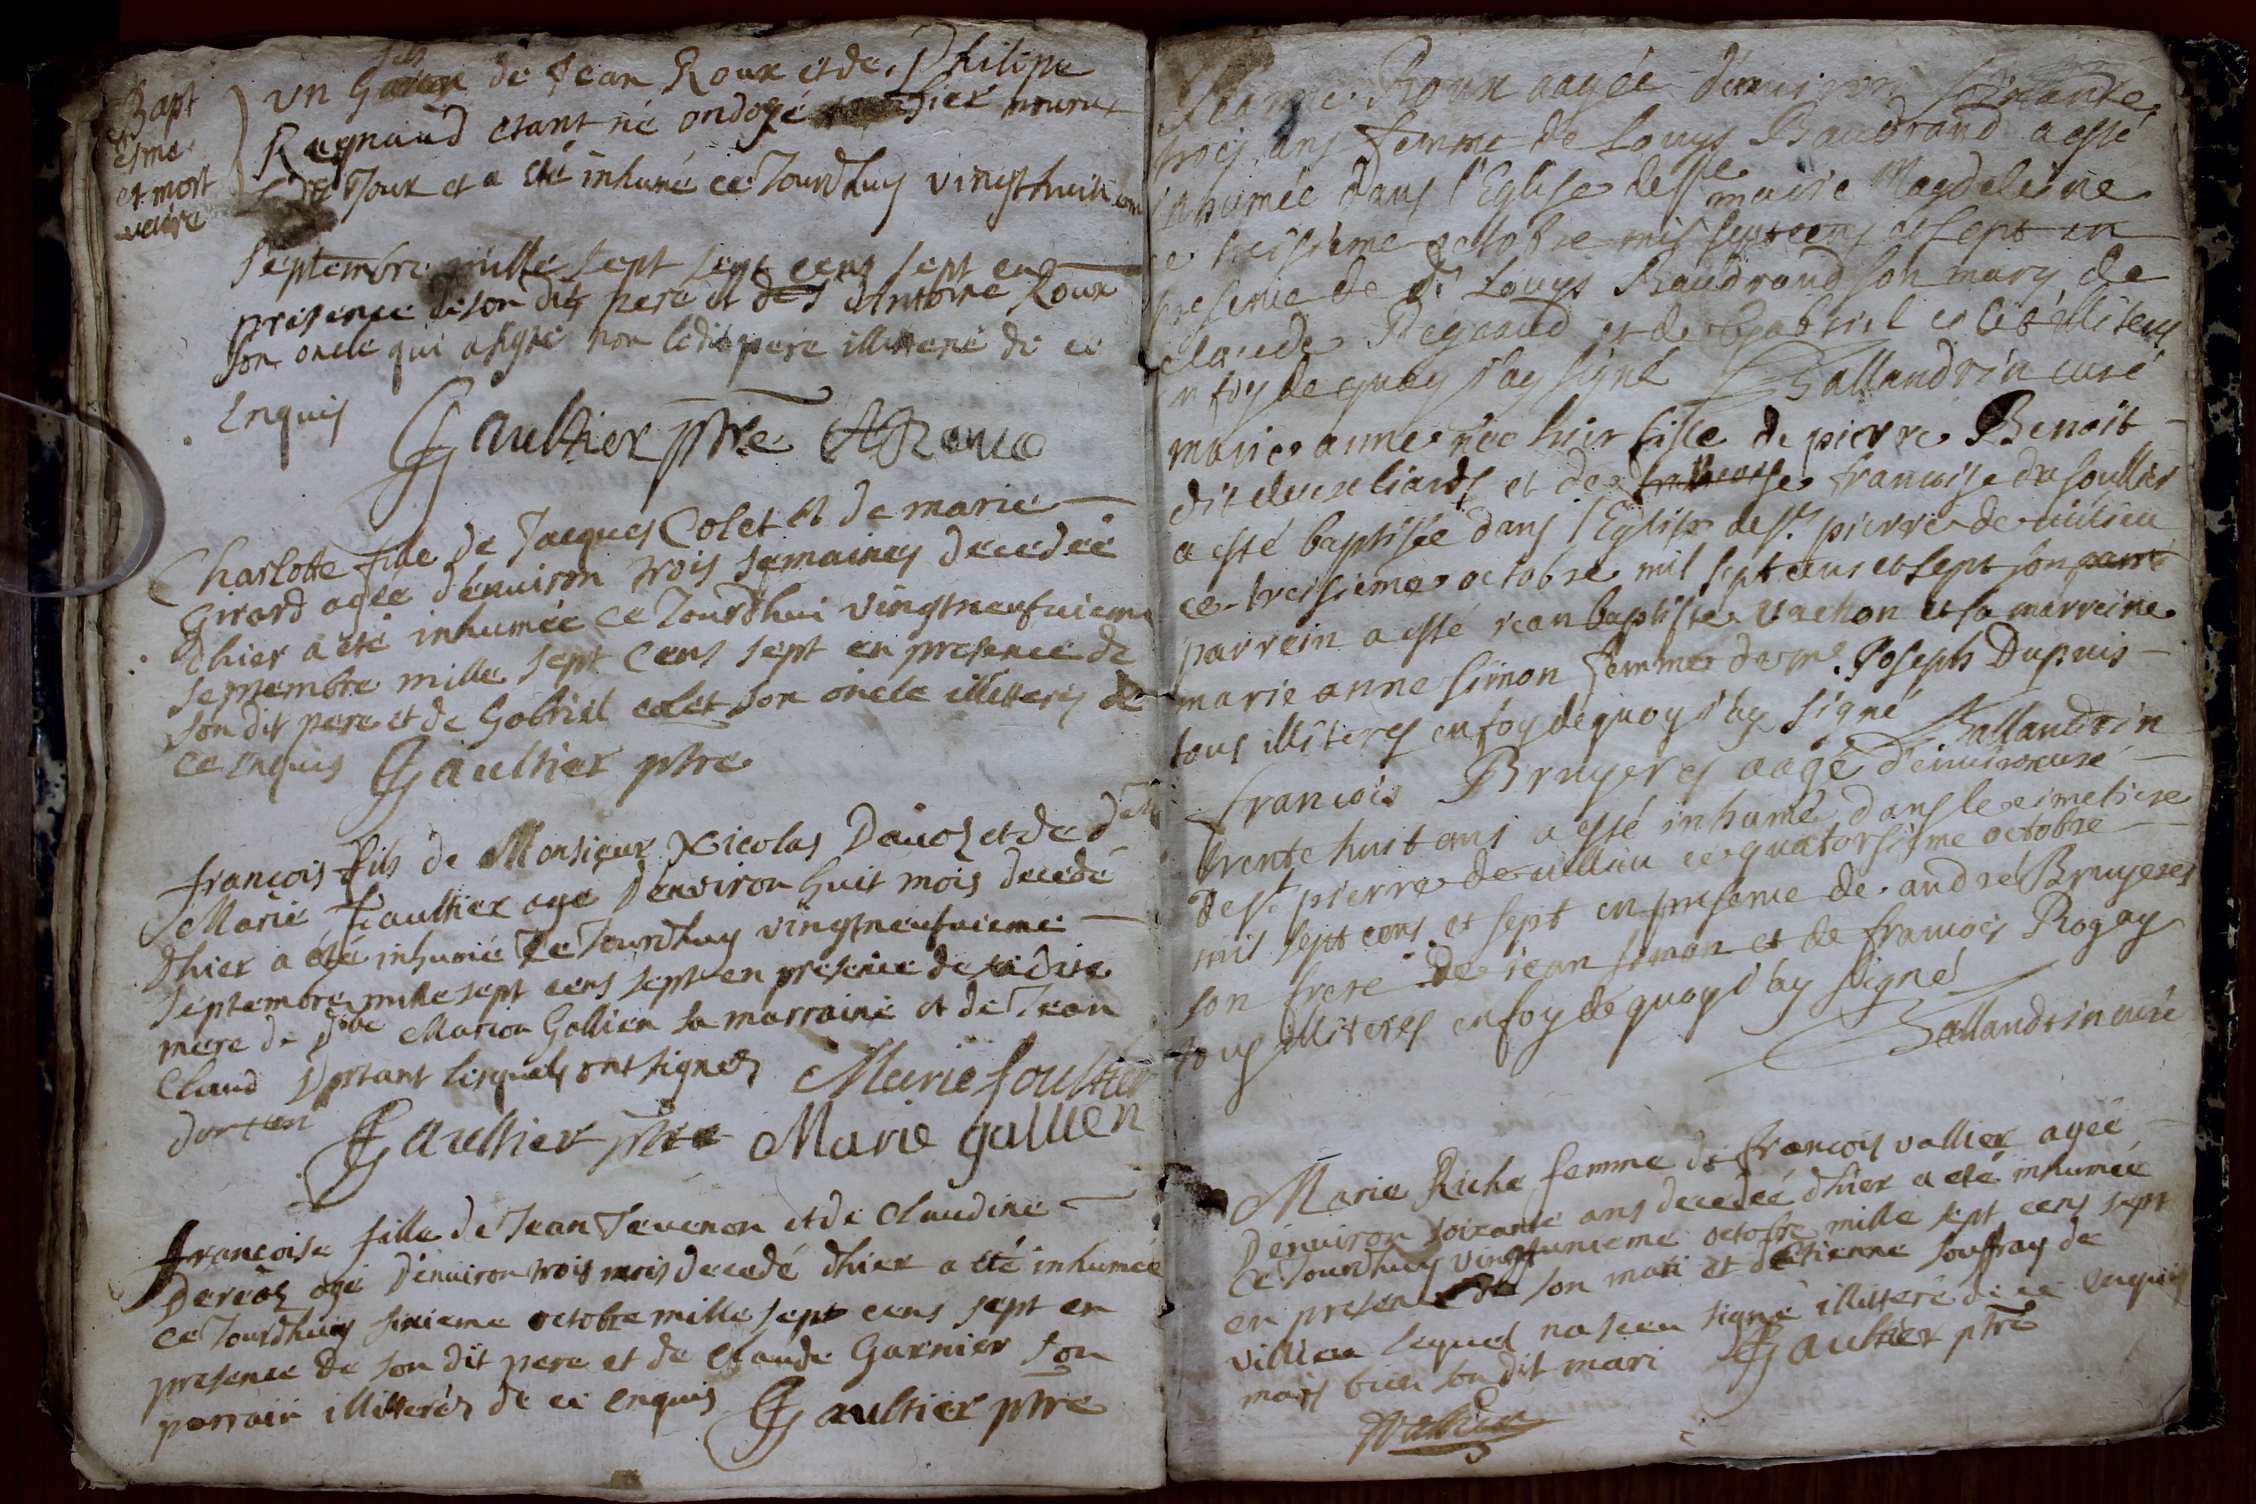 Bapt
esme
et mort
fils
un Garcon de Jean Roux et de Philipe
Regnaud etant né ondoyé dhier mourut
Jour et a eté inhumé ce Jourdhuy vingt huit
septembre mille sept sept cens sept en
presence de son dit pere et des Antoine Roux
son oncle qui a signé non ledit pere illitteré de ce
Enquis
Gaultier ptre A Roux
Charlotte fille de Jacques Colet et de marie
Girard agée d'enuiron trois semaines decedée
dhier a eté inhumée ce Jourdhui vingtneufuieme
septembre mille sept cens sept en presence de
son dit pere et de Gabriel colet son oncle illitterés de
ce enquis Gaultier ptre
françois fils de Monsieur Nicolas et de
Marie Gaultier agé d'enuiron huit mois decedé
dhier a eté inhumé ce Jourdhuy vingtneufuieme
septembre mille sept cens sept en presence de sa dite
mere de Marion Gallien sa marraine et de Jean
Claud lesquels ont signez Marie
dortan Gaultier ptre Marie gallien
françoise fille de Jean Teuenon et de Claudine
agé d'enuiron trois mois decedé dhier a eté inhumée
ce Jourdhuy sixieme octobre mille sept cens sept en
presence de son dit pere et de Claude Garnier son
parrain illitterés de ce enquis Gaultier ptre
Roux aagée denuiron soixante
trois ans femme de Louys Baudrand a esté
inhumée dans l'Eglise de Ste marie Magdeleine
ce treisieme octobre mil sept cens et sept en
presence de dt Louys Baudrand son mary de
claude Regnaud et de Gabriel colet illiteres
en foy de quoy j'ay signé Ballandrin curé
marie anne née hier fille de pierre Benoit
dit et de francoise du soullier
a esté baptisée dans l'Eglise de St. pierre de uilieu
ce treisieme octobre mil sept cens et sept son
parrein a esté jean baptiste Vachon et sa marreine
marie anne simon femme de me. Joseph Dupuis
tous illiteres en foy de quoy j'ay signé Ballandrin
curé
francois Bruyeres aagé d'enuiron
trente huit ans a esté inhumé dans le cimetiere
de St. pierre de uillieu ce quatorsieme octobre
mil sept cens et sept en presence de andré Bruyeres
son frere de jean simon et de francois Rogay
tous illiteres en foy de quoy j'ay signé
Ballandrin curé
Marie Riche femme de françois vallier agée
D'enuiron soixante ans decedée dhier a eté inhumée
ce Jourdhuy vingtunieme octobre mille sept cens sept
en presence de son mari et d'étienne souffray de
villieu lequel na sceu signé illitteré de ce enquis
mais bien son dit mari Gaultier ptre